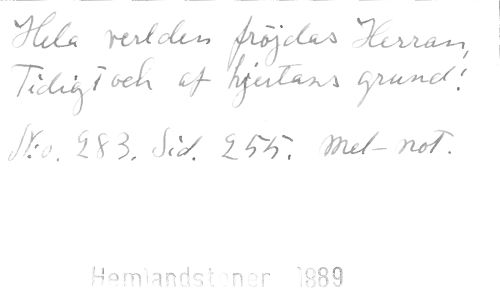 Hela verlden fröjdas Herran,
Tidigt och af hjertans grund!
N:o. 283. Sid. 255. Mel-not.
Hemlandstoner 1889